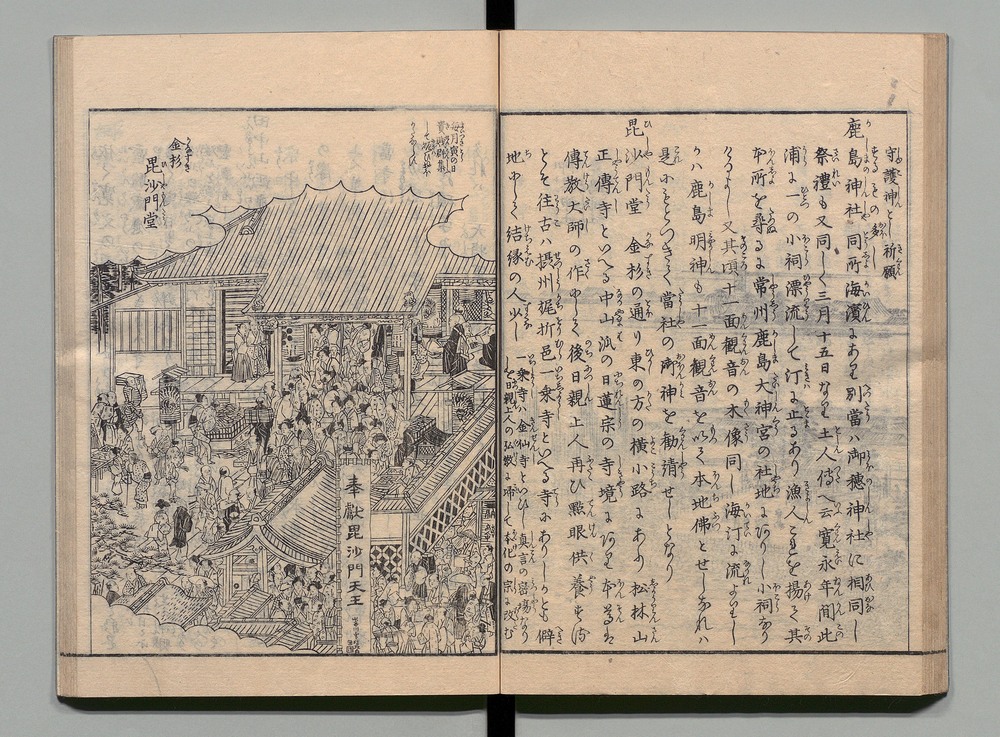 守護神と祈願
するもの多し
鹿島神社 同所海濱にあり別當ハ御穂神社に相同し
祭禮も又同しく三月十五日なり土人傳へ云寛永年間此
浦に一の小祠漂流して汀に止るあり漁人これを揚て其
本所を尋るに常州鹿島大神宮の社地にありし小祠なり
又其頃十一面観音の木像同し海汀に流よりし
ハ鹿島明神も十一面観音を以て本地佛とせしなれハ
是にもとつきて當社の御神を勸請せしとなり
毘沙門堂 金杉の通り東の方の横小路にあり松林山
正傳寺といへる中山派の日蓮宗の寺境にあり本尊は
傳教大師の作にして後日親上人再ひ點眼供養す
とそ往古ハ摂州梶折邑一乗寺といへる寺にありしかとも僻
地にして結縁の人少し
一乗寺ハ金仙寺といひし真言の密場なり
しを日親上人の弘教に帰して本化の宗に改む
毎月寅の日
貴賤群集
金杉
毘沙門堂
奉獻毘沙門天王